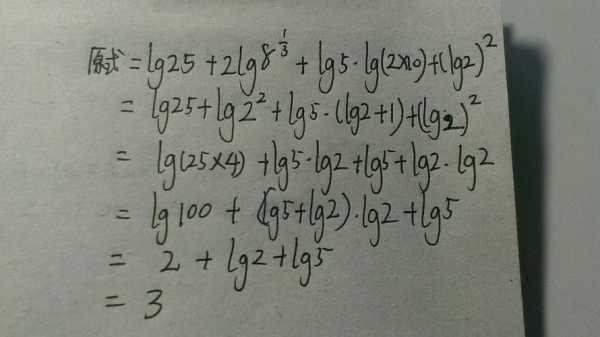 原式 = lg25 + 2lg8^{1/3} + lg5·lg(2×10) + (lg2)^2
= lg25 + lg2^2 + lg5·(lg2+1) + (lg2)^2
= lg(25×4) + lg5·lg2 + lg5 + lg2·lg2
= lg100 + (lg5+lg2)·lg2 + lg5
= 2 + lg2 + lg5
= 3